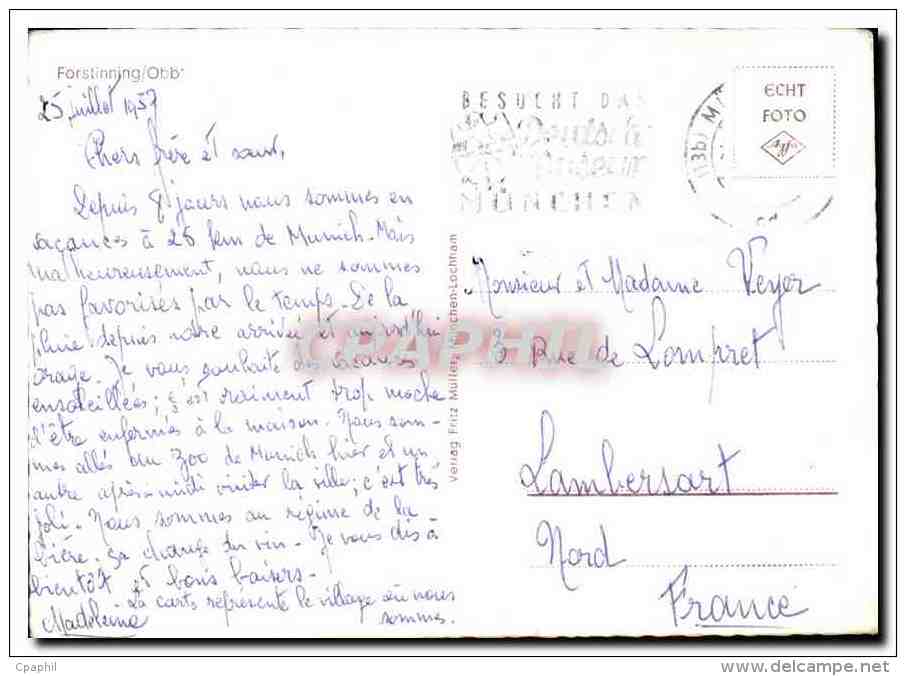 Forstinning/Obb.
25 juillet 1957
Chers frère et sœur,
Depuis 8 jours nous sommes en
vacances à 25 km de Munich. Mais
malheureusement, nous ne sommes
pas favorisés par le temps. De la
pluie depuis notre arrivée et aujourd'hui
orage. Je vous souhaite des vacances
ensoleillées; c'est vraiment trop moche
d'être enfermés à la maison. Nous som-
mes allés au Zoo de Munich hier et un
autre après-midi visiter la ville; c'est très
joli. Nous sommes au régime de la
bière. ça change du vin. Je vous dis à
bientôt et bons baisers.
Madeleine
La carte représente le village où nous
sommes.
Verlag Fritz Müller, München-Lochham
BESUCHT DAS
Deutsche
Museum
MÜNCHEN
(13b) M
ECHT
FOTO
Monsieur et Madame Veyer
3 Rue de Lompret
Lambersart
Nord
France
CPAPHIL
Cpaphil
www.delcampe.net